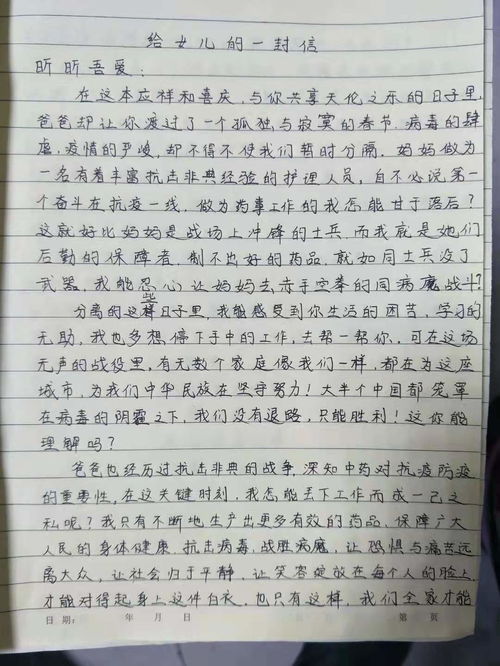 给女儿的一封信
昕昕吾爱：
在这本应祥和喜庆，与你共享天伦之乐的日子里，
爸爸却让你渡过了一个孤独与寂寞的春节，病毒的肆
虐，疫情的严峻，却不得不使我们暂时分离。妈妈做为
一名有着丰富抗击非典经验的护理人员，自不必说第一
个奋斗在抗疫一线，做为药事工作的我怎能甘于落后？
这就好比妈妈是战场上冲锋的士兵，而我就是她们
后勤的保障者，制不出好的药品，就如同士兵没了
武器，我能忍心让妈妈去赤手空拳的同病魔战斗？
分离的这些日子里，我能感受到你生活的困苦，学习的
无助，我也多想停下手中的工作，去帮一帮你，可在这场
无声的战役里，有无数个家庭像我们一样，都在为这座
城市，为我们中华民族在坚守努力！大半个中国都笼罩
在病毒的阴霾之下，我们没有退路，只能胜利！这你能
理解吗？
爸爸也经历过抗击非典的战争，深知中药对抗疫防疫
的重要性，在这关键时刻，我怎能丢下工作而成一己之
私呢？我只有不断地生产出更多有效的药品，保障广大
人民的身体健康，抗击病毒，战胜病魔，让恐惧与痛苦远
离大众，让社会归于平静，让笑容绽放在每个人的脸上，
才能对得起身上这件白衣，也只有这样，我们全家才能
日期： 年 月 日 第 页